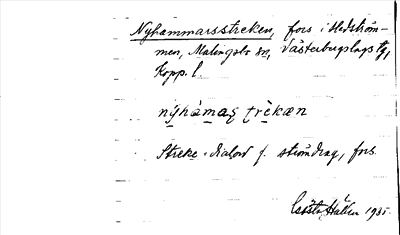 Nyhammarsstreken, fors i Hedström-
men, Malingsbo sn, Västerbergslags tg,
Kopp. l.
nýhàmaṣ trèkæn
Streke - dialord f. strömdrag, fors.
Gösta Hallén 1935.